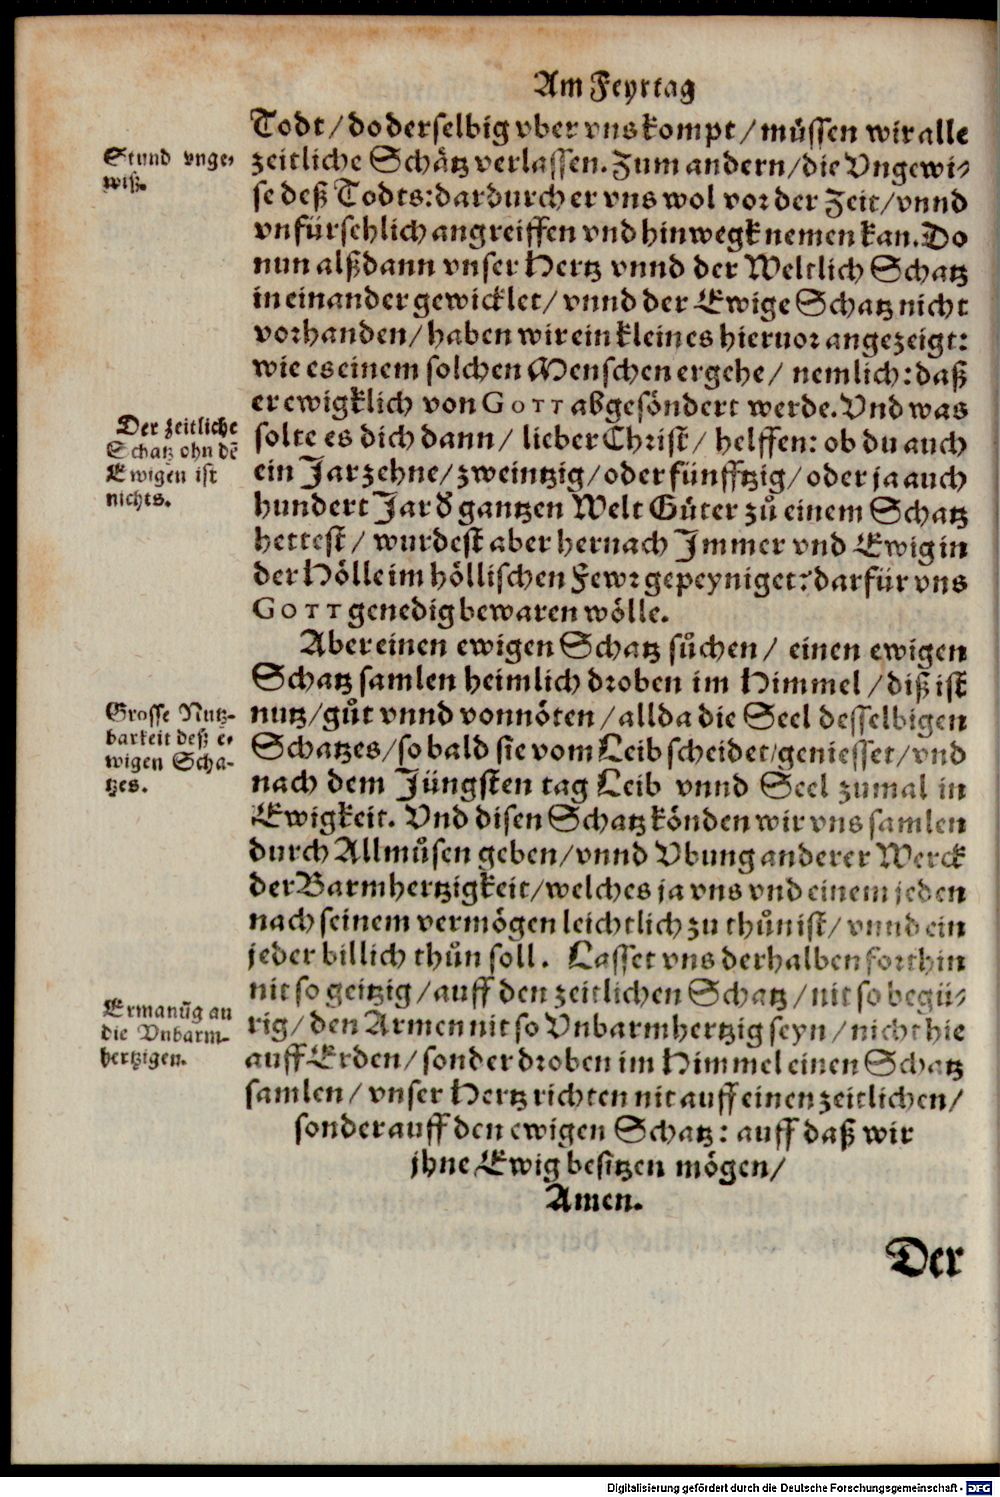 Am Feyrtag
Todt / do derselbig vber vns kompt / müssen wir alle
Stund vnge-
wiß.
zeitliche Schätz verlassen. Zum andern / die Vngewi-
se deß Todts: dardurch er vns wol vor der Zeit / vnnd
vnfürsehlich angreiffen vnd hinwegk nemen kan. Do
nun alßdann vnser Hertz vnnd der Weltlich Schatz
in einander gewicklet / vnnd der Ewige Schatz nicht
vorhanden / haben wir ein kleines hieruor angezeigt:
wie es einem solchen Menschen ergehe / nemlich: daß
er ewigklich von GOTT abgesöndert werde. Vnd was
Der zeitliche
Schatz ohn dẽ
Ewigen ist
nichts.
solte es dich dann / lieber Christ / helffen: ob du auch
ein Jar zehne / zweintzig / oder fünfftzig / oder ja auch
hundert Jar d' gantzen Welt Güter zů einem Schatz
hettest / wurdest aber hernach Immer vnd Ewig in
der Hölle im höllischen Fewr gepeyniget? darfür vns
GOTT genedig bewaren wölle.
Aber einen ewigen Schatz sůchen / einen ewigen
Schatz samlen heimlich droben im Himmel / diß ist
Grosse Nutz-
barkeit deß e-
wigen Scha-
tzes.
nutz / gůt vnnd vonnöten / allda die Seel desselbigen
Schatzes / so bald sie vom Leib scheidet / geniesset / vnd
nach dem Jüngsten tag Leib vnnd Seel zumal in
Ewigkeit. Vnd disen Schatz könden wir vns samlen
durch Allmůsen geben / vnnd Vbung anderer Werck
der Barmhertzigkeit / welches ja vns vnd einem jeden
nach seinem vermögen leichtlich zu thůn ist / vnnd ein
jeder billich thůn soll. Lasset vns derhalben forthin
Ermanũg an
die Vnbarm-
hertzigen.
nit so geitzig / auff den zeitlichen Schatz / nit so begü-
rig / den Armen nit so Vnbarmhertzig seyn / nicht hie
auff Erden / sonder droben im Himmel einen Schatz
samlen / vnser Hertz richten nit auff einen zeitlichen /
sonder auff den ewigen Schatz: auff daß wir
jhne Ewig besitzen mögen /
Amen.
Der
Digitalisierung gefördert durch die Deutsche Forschungsgemeinschaft - DFG